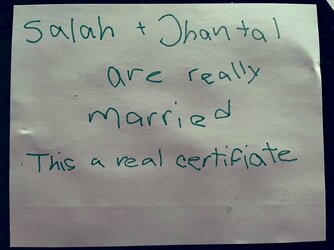 Salah + Jhantal
are really
married
This a real certifiate